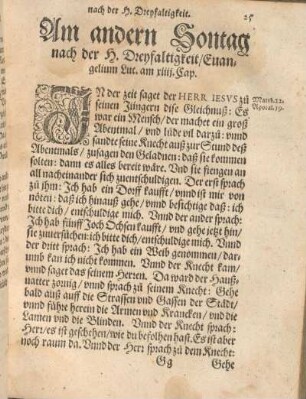 nach der H. Dreyfaltigkeit.
25
Am andern Sontag
nach der H. Dreyfaltigkeit/Euan-
gelium Luc. am xiiij. Cap.
IN der zeit saget der HERR IESVS zů
seinen Jüngern dise Gleichnuß: Es
war ein Mensch/der machet ein groß
Abentmal/ vnd lůde vil darzů: vnnd
sandte seine Knecht auß zur Stund deß
Abentmals/zusagen den Geladnen: daß sie kommen
solten: dann es alles bereit wäre. Vnd sie fiengen an
all nacheinander sich zuentschuldigen. Der erst sprach
zů ihm: Ich hab ein Dorff kaufft/vnnd ist mir von
nöten: daß ich hinauß gehe/ vnnd besichtige daß: ich
bitte dich/ entschuldige mich. Vnnd der ander sprach:
Ich hab fünff Joch Ochsen kaufft/ vnd gehe jetzt hin/
sie zuuersůchen: ich bitte dich/entschuldige mich. Vnnd
der drit sprach: Ich hab ein Weib genommen/ dar-
umb kan ich nicht kommen. Vnnd der Knecht kam/
vnnd saget das seinem Herren. Da ward der Hauß-
uatter zornig/ vnnd sprach zů seinem Knecht: Gehe
bald auß auff die Strassen vnd Gassen der Stadt/
vnnd führe herein die Armen vnd Krancken/ vnd die
Lamen vnd die Blinden. Vnnd der Knecht sprach:
Herr/es ist geschehen/wie du befolhen hast. Es ist aber
noch raum da. Vnnd der Herr sprach zů dem Knecht:
Gg
Gehe
Matth.22.
Apocal.19.